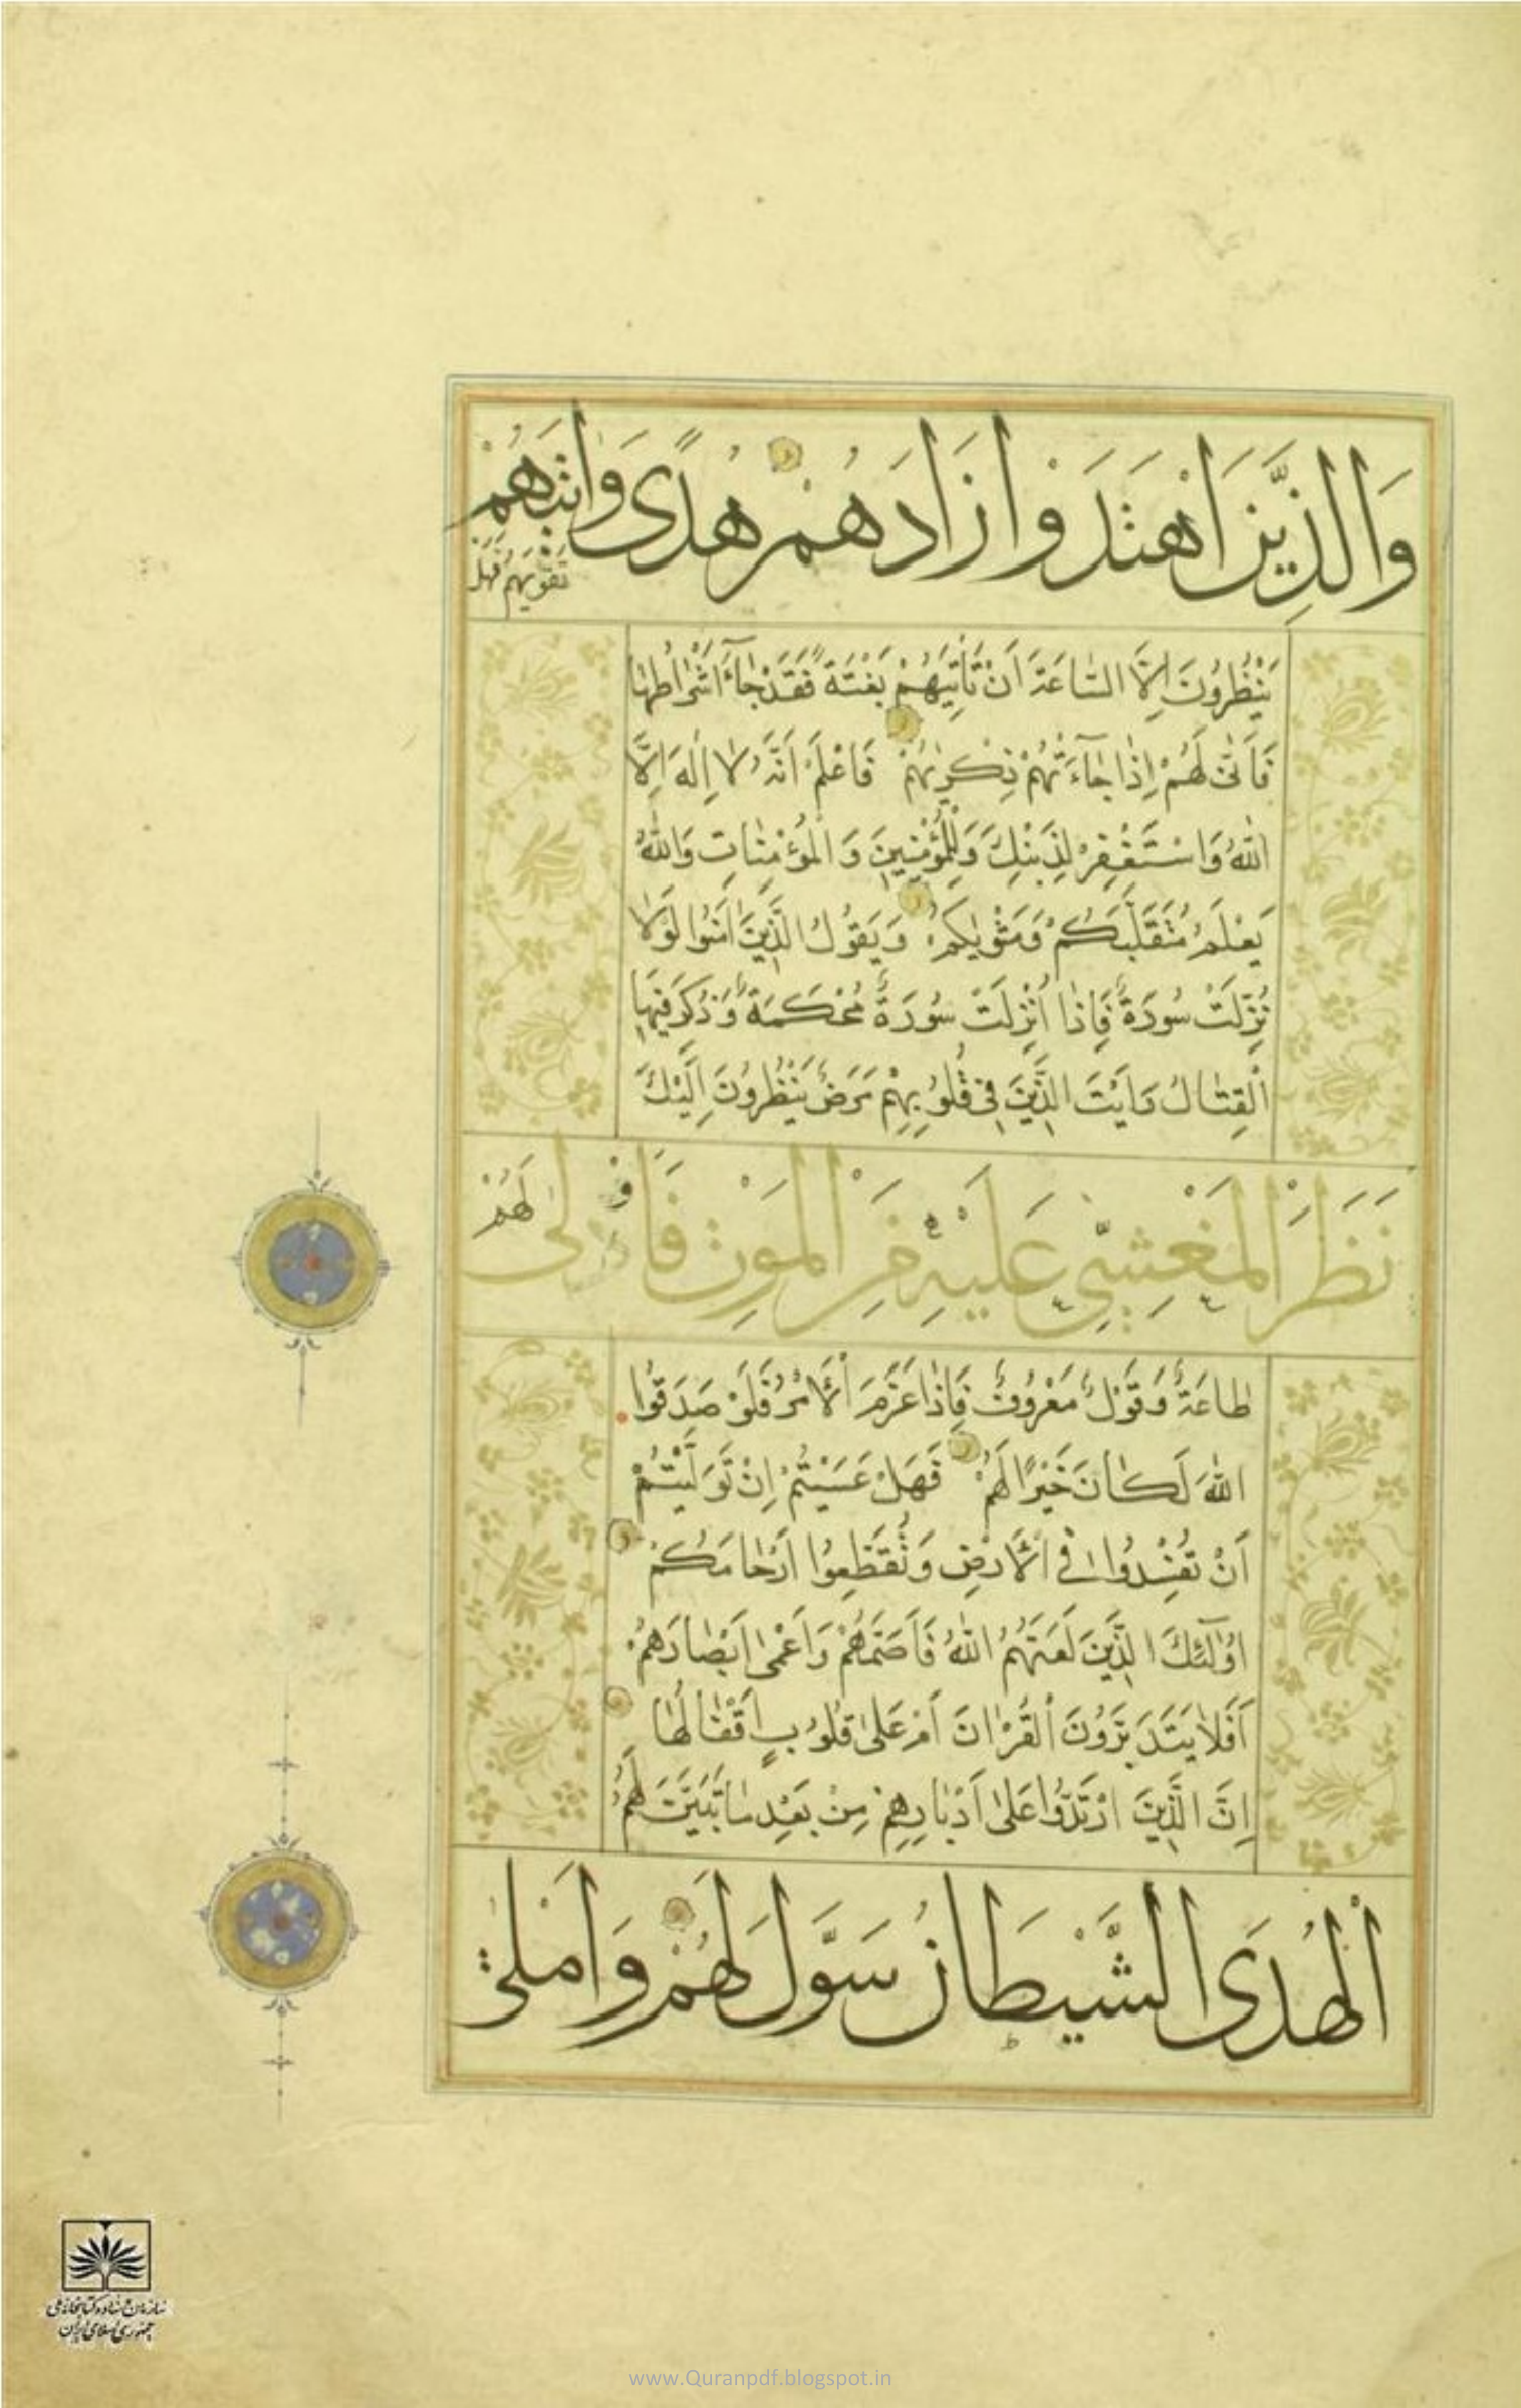 وَالَّذِينَ اهْتَدَوْا زَادَهُمْ هُدًى وَاٰتٰیهُمْ
تَقْوٰیهُمْ فَهَلْ
يَنْظُرُونَ اِلَّا السَّاعَةَ اَنْ تَأْتِيَهُمْ بَغْتَةً فَقَدْ جَاءَ اَشْرَاطُهَا
فَاَنّٰى لَهُمْ اِذَا جَاءَتْهُمْ ذِكْرٰیهُمْ فَاعْلَمْ اَنَّهُ لَا اِلٰهَ اِلَّا
اللّٰهُ وَاسْتَغْفِرْ لِذَنْبِكَ وَلِلْمُؤْمِنِينَ وَالْمُؤْمِنَاتِ وَاللّٰهُ
يَعْلَمُ مُتَقَلَّبَكُمْ وَمَثْوٰیكُمْ وَيَقُولُ الَّذِينَ اٰمَنُوا لَوْلَا
نُزِّلَتْ سُورَةٌ فَاِذَا اُنْزِلَتْ سُورَةٌ مُحْكَمَةٌ وَذُكِرَ فِيهَا
الْقِتَالُ رَاَيْتَ الَّذِينَ فِي قُلُوبِهِمْ مَرَضٌ يَنْظُرُونَ اِلَيْكَ
نَظَرَ الْمَغْشِيِّ عَلَيْهِ مِنَ الْمَوْتِ فَاَوْلٰى لَهُمْ
طَاعَةٌ وَقَوْلٌ مَعْرُوفٌ فَاِذَا عَزَمَ الْاَمْرُ فَلَوْ صَدَقُوا
اللّٰهَ لَكَانَ خَيْرًا لَهُمْ فَهَلْ عَسَيْتُمْ اِنْ تَوَلَّيْتُمْ
اَنْ تُفْسِدُوا فِي الْاَرْضِ وَتُقَطِّعُوا اَرْحَامَكُمْ
اُولٰئِكَ الَّذِينَ لَعَنَهُمُ اللّٰهُ فَاَصَمَّهُمْ وَاَعْمٰى اَبْصَارَهُمْ
اَفَلَا يَتَدَبَّرُونَ الْقُرْاٰنَ اَمْ عَلٰى قُلُوبٍ اَقْفَالُهَا
اِنَّ الَّذِينَ ارْتَدُّوا عَلٰى اَدْبَارِهِمْ مِنْ بَعْدِ مَا تَبَيَّنَ لَهُمُ
الْهُدَى الشَّيْطَانُ سَوَّلَ لَهُمْ وَاَمْلٰى
سازمان اسناد و کتابخانه ملی
جمهوری اسلامی ایران
www.Quranpdf.blogspot.in